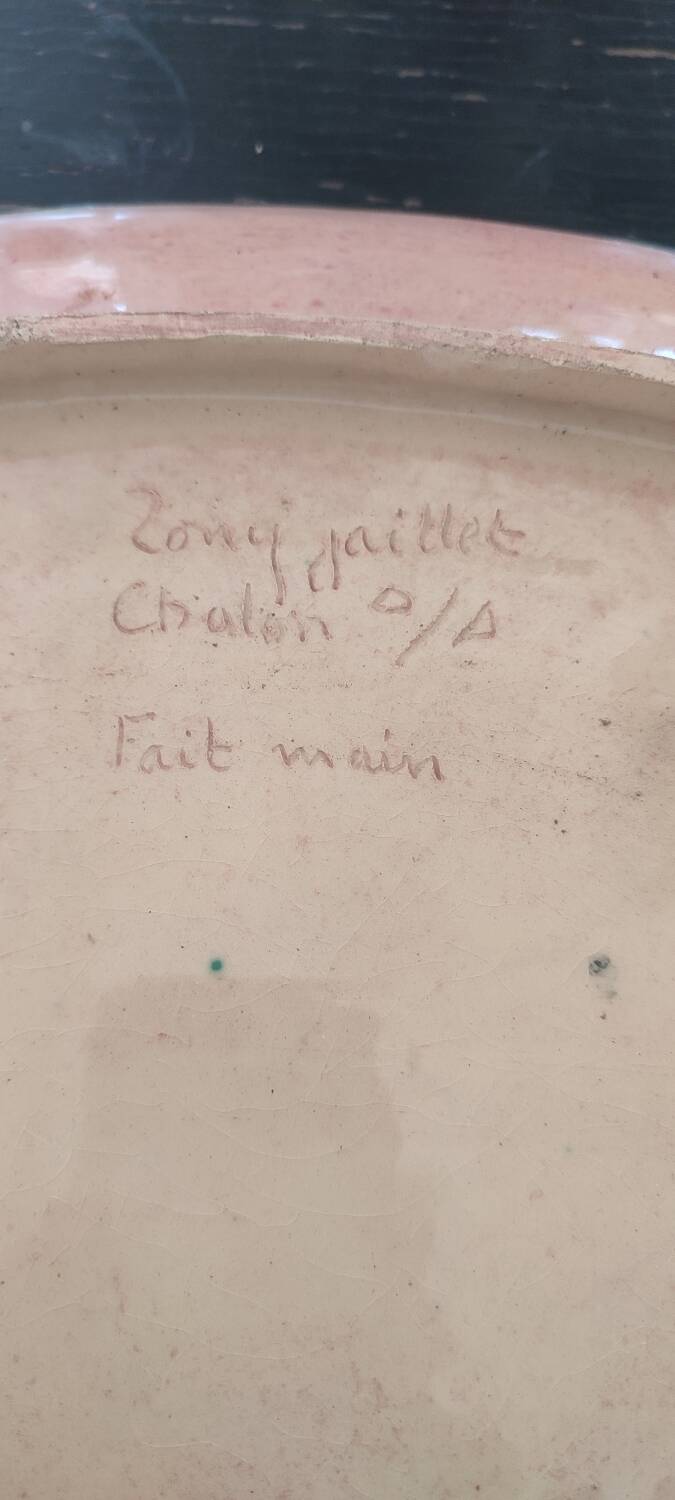 Tony gaillet
Chalon △/△
Fait main